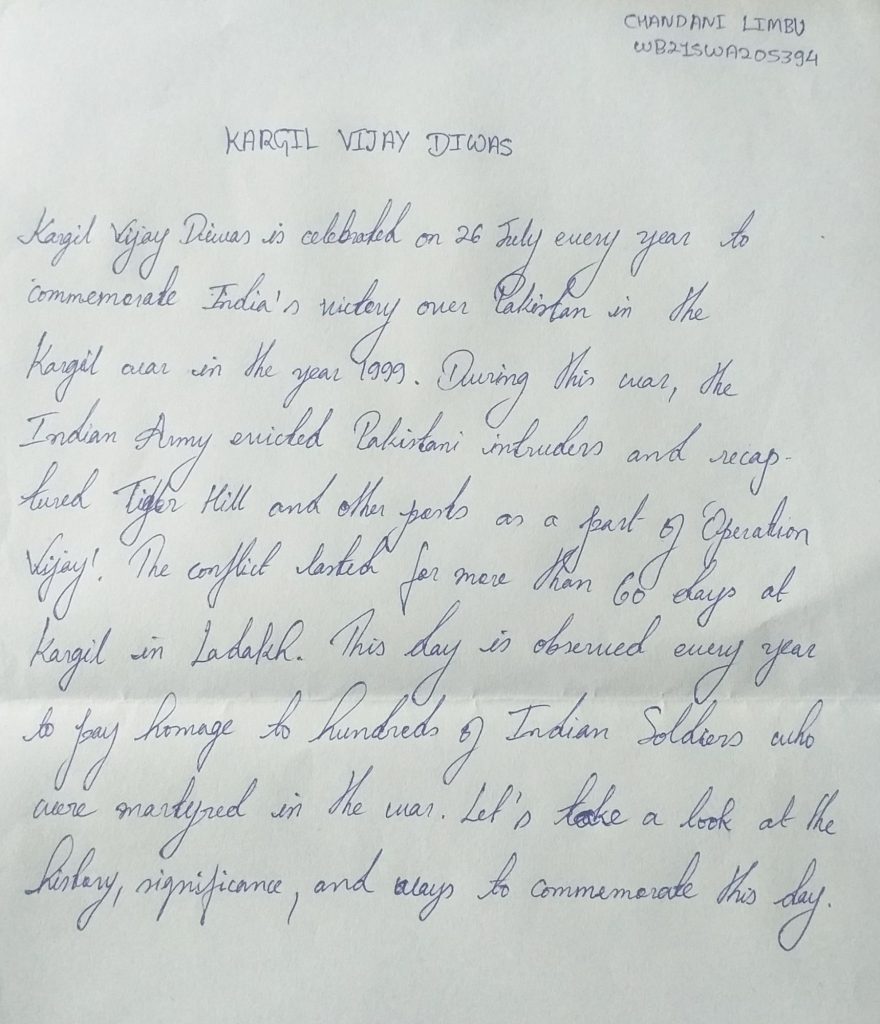 CHANDANI LIMBU
WB21SWA205394
KARGIL VIJAY DIWAS
Kargil Vijay Diwas is celebrated on 26 July every year to
commemorate India's victory over Pakistan in the
Kargil war in the year 1999. During this war, the
Indian Army evicted Pakistani intruders and recap-
tured Tiger Hill and other posts as a part of 'Operation
Vijay'. The conflict lasted for more than 60 days at
Kargil in Ladakh. This day is observed every year
to pay homage to hundreds of Indian Soldiers who
were martyred in the war. Let's take a look at the
history, significance, and ways to commemorate this day.